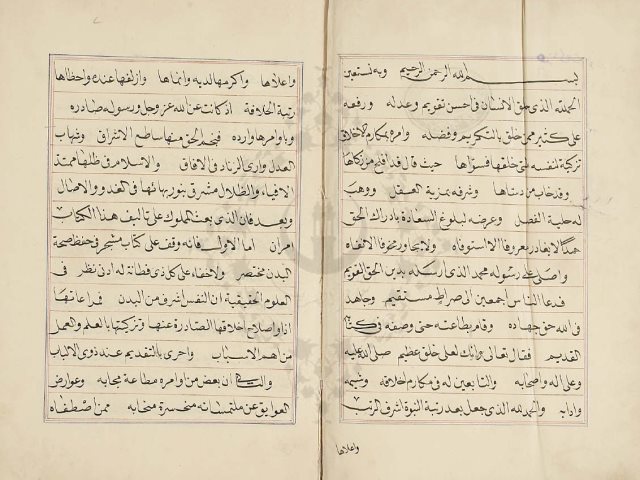 بسم الله الرحمن الرحيم وبه نستعين
الحمد لله الذي خلق الانسان في احسن تقويم وعدله ورفعه
على كثير ممن خلق بالتكريم وفضله وامره بمكارم الاخلاق
تزكية لنفسه التي خلقها فسواها حيث قال قد افلح من زكاها
وقد خاب من دساها وشرفه بمزية العقل ووهب
له حلية الفضل وعرضه لبلوغ السعادة بادراك الحق
حمدا لا يغادر معروفا الا استوفاه ولا يجاور مخوفا الا نفاه
واصلي على رسوله محمد الذي ارسله بدين الحق القويم
فدعا الناس اجمعين الى صراط مستقيم وجاهد
في الله حق جهاده وقام بطاعته حتى وصفه في كتابه
القديم فقال تعالى وانك لعلى خلق عظيم صلى الله عليه
وعلى اله واصحابه والتابعين له في مكارم اخلاقه وشيمه
وادابه والحمد لله الذي جعل بعد رتبة النبوة اشرف الرتب
واعلاها
واعلاها واكرمها لديه وانماها وازلفها عنده واحظاها
رتبة الخلافة اذ كانت عن الله عز وجل ورسوله صادره
وباوامرها وارده فنجم الحق منها ساطع الاشراق وشهاب
العدل واري الزناد في الافاق والاسلام في ظلها ممتد
الافياء والظلال مشرق بنور بهائها في الغدو والاصال
وبعد فان الذي بعث المملوك على تاليف هذا الكتاب
امران اما الاول فانه وقف على كتاب مشجر في حفظ صحة
البدن مختصر ولا خفاء على كل ذي فطانة له ادنى نظر في
العلوم الحقيقية ان النفس اشرف من البدن فمراعاتها
اذا واصلاح اخلاقها الصادرة عنها وتزكيتها بالعلم والعمل
من اهم الاسباب واحرى بالتقديم عند ذوي الالباب
والثاني ان بعض من اوامره مطاعة مجابه وعوارض
العوايق عن ملتمساته منحسرة منجابه ممن اصطفاه